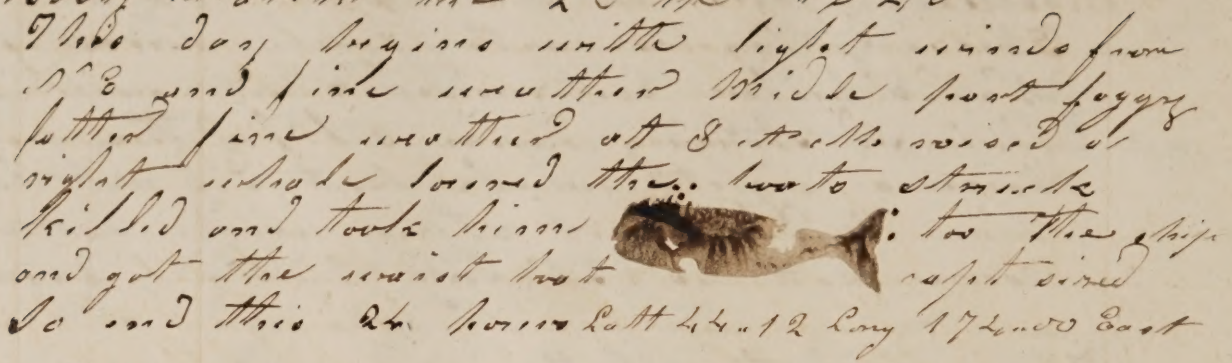 This day begins with light winds from
N E and fine weather Middle part foggy
latter fine weather at 8 raised a
right whale lowred the boats struck
killed and took him too the ship
and got the waist boat capt sized
So end this 24 hours Latt 44..12 Long 174..00 East